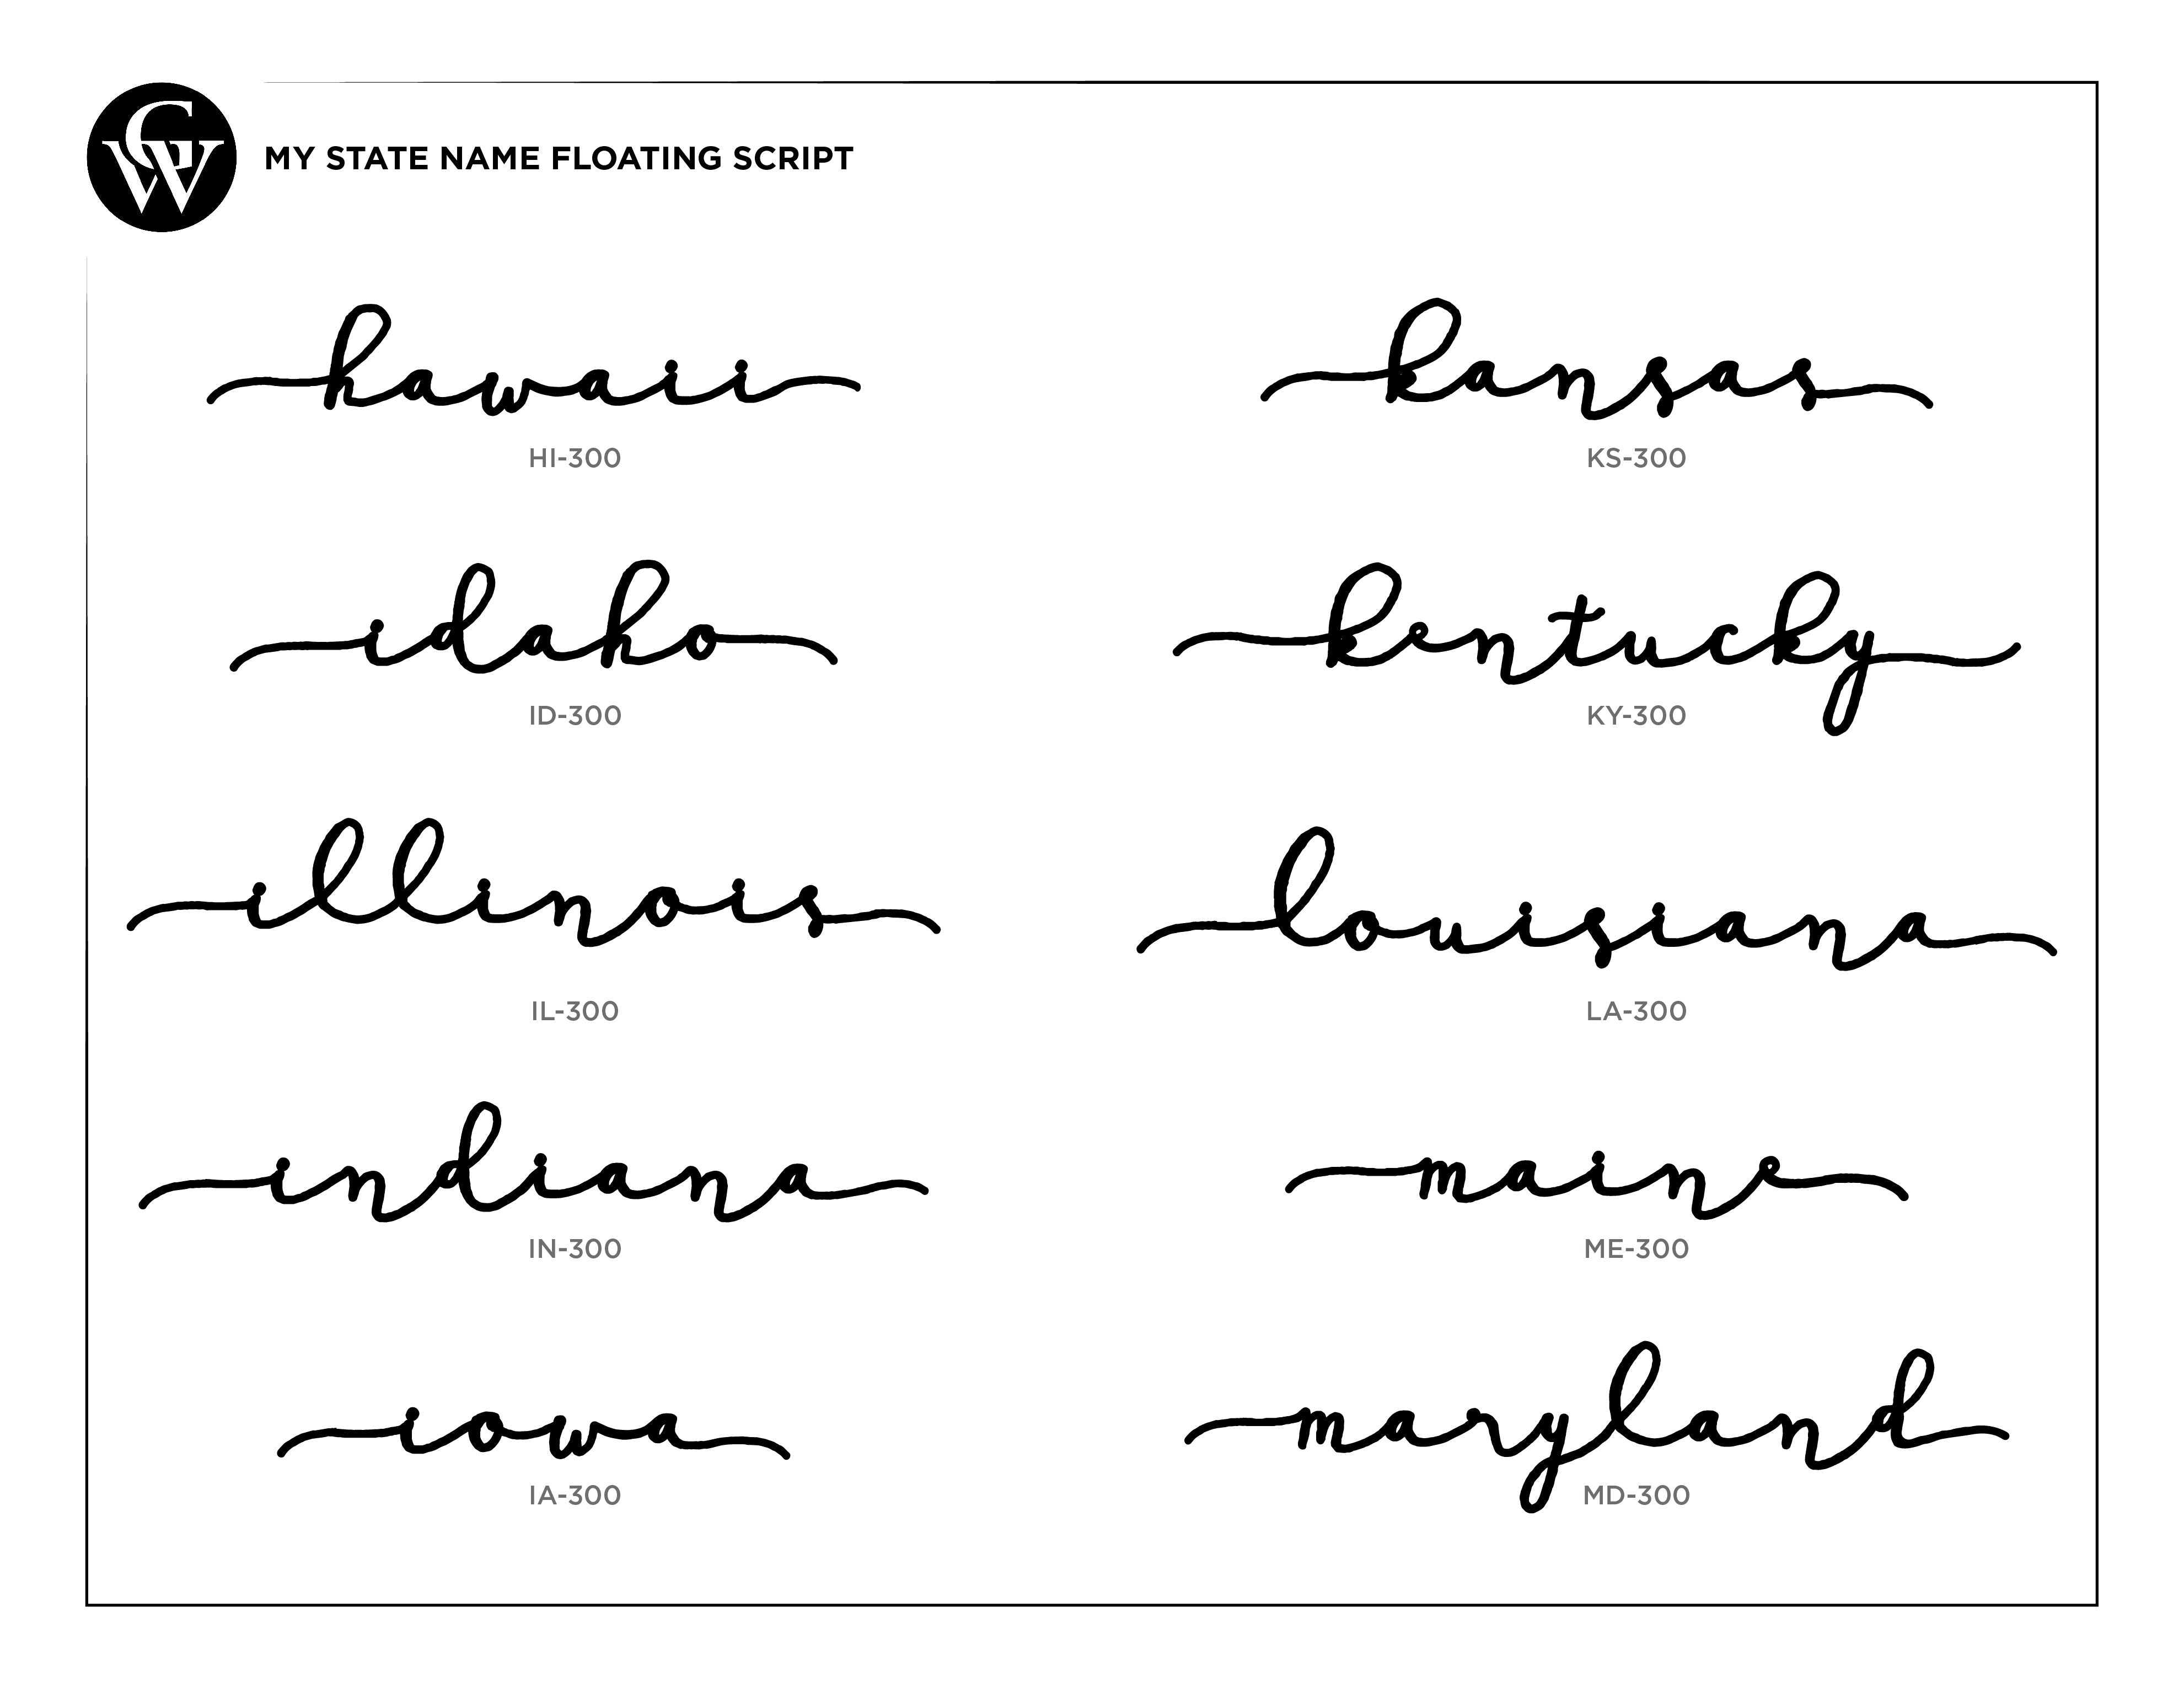 CW
MY STATE NAME FLOATING SCRIPT
hawaii
HI-300
idaho
ID-300
illinois
IL-300
indiana
IN-300
iowa
IA-300
kansas
KS-300
kentucky
KY-300
louisiana
LA-300
maine
ME-300
maryland
MD-300